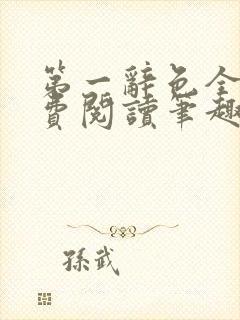 第一辭色全
費閱讀筆趣
孫武